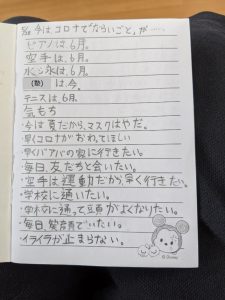 5/28 今は、コロナで「ならいごと」が……
ピアノは、6月。
空手は、6月。
水泳は、6月。
(塾) は、今。
テニスは、6月。
気もち
・今は夏だから、マスクはやだ。
・早くコロナがおわってほしい
・早くバアバの家に行きたい。
・毎日、友だちと会いたい。
・空手は運動だから、早く行きたい。
・学校に通いたい。
・学校に通って頭がよくなりたい。
・毎日、
でいたい。
・イライラが止まらない。
© Disney